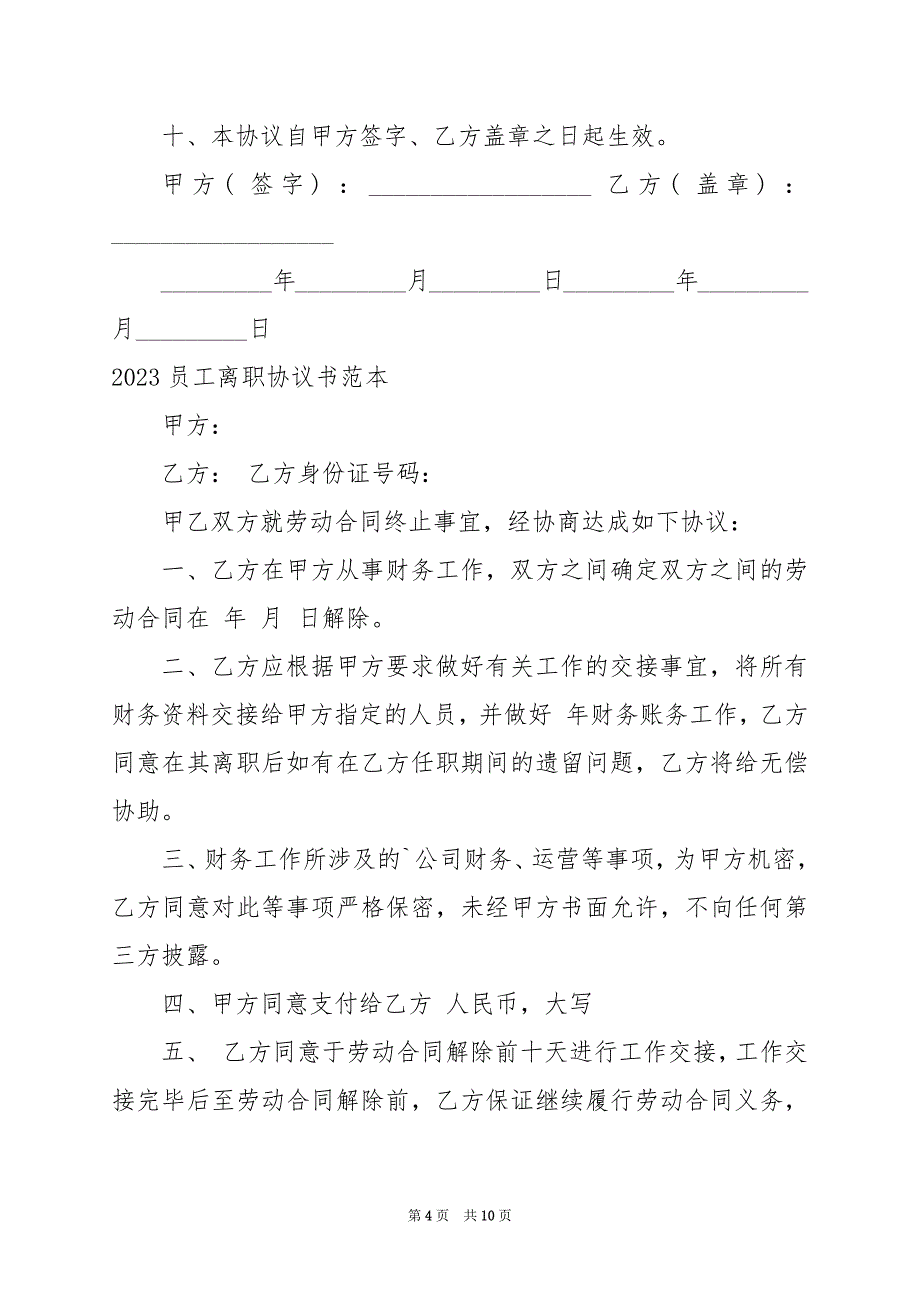 十、本协议自甲方签字、乙方盖章之日起生效。
甲方( 签字)：__________________ 乙方( 盖章)：
__________________
_________年_________月_________日_________年_________
月_________日
2023 员工离职协议书范本
甲方：
乙方： 乙方身份证号码：
甲乙双方就劳动合同终止事宜，经协商达成如下协议：
一、乙方在甲方从事财务工作，双方之间确定双方之间的劳
动合同在 年 月 日解除。
二、乙方应根据甲方要求做好有关工作的交接事宜，将所有
财务资料交接给甲方指定的人员，并做好 年财务账务工作，乙方
同意在其离职后如有在乙方任职期间的遗留问题，乙方将给无偿
协助。
三、财务工作所涉及的`公司财务、运营等事项，为甲方机密，
乙方同意对此等事项严格保密，未经甲方书面允许，不向任何第
三方披露。
四、甲方同意支付给乙方 人民币，大写
五、 乙方同意于劳动合同解除前十天进行工作交接，工作交
接完毕后至劳动合同解除前，乙方保证继续履行劳动合同义务，
第 4 页 共 10 页